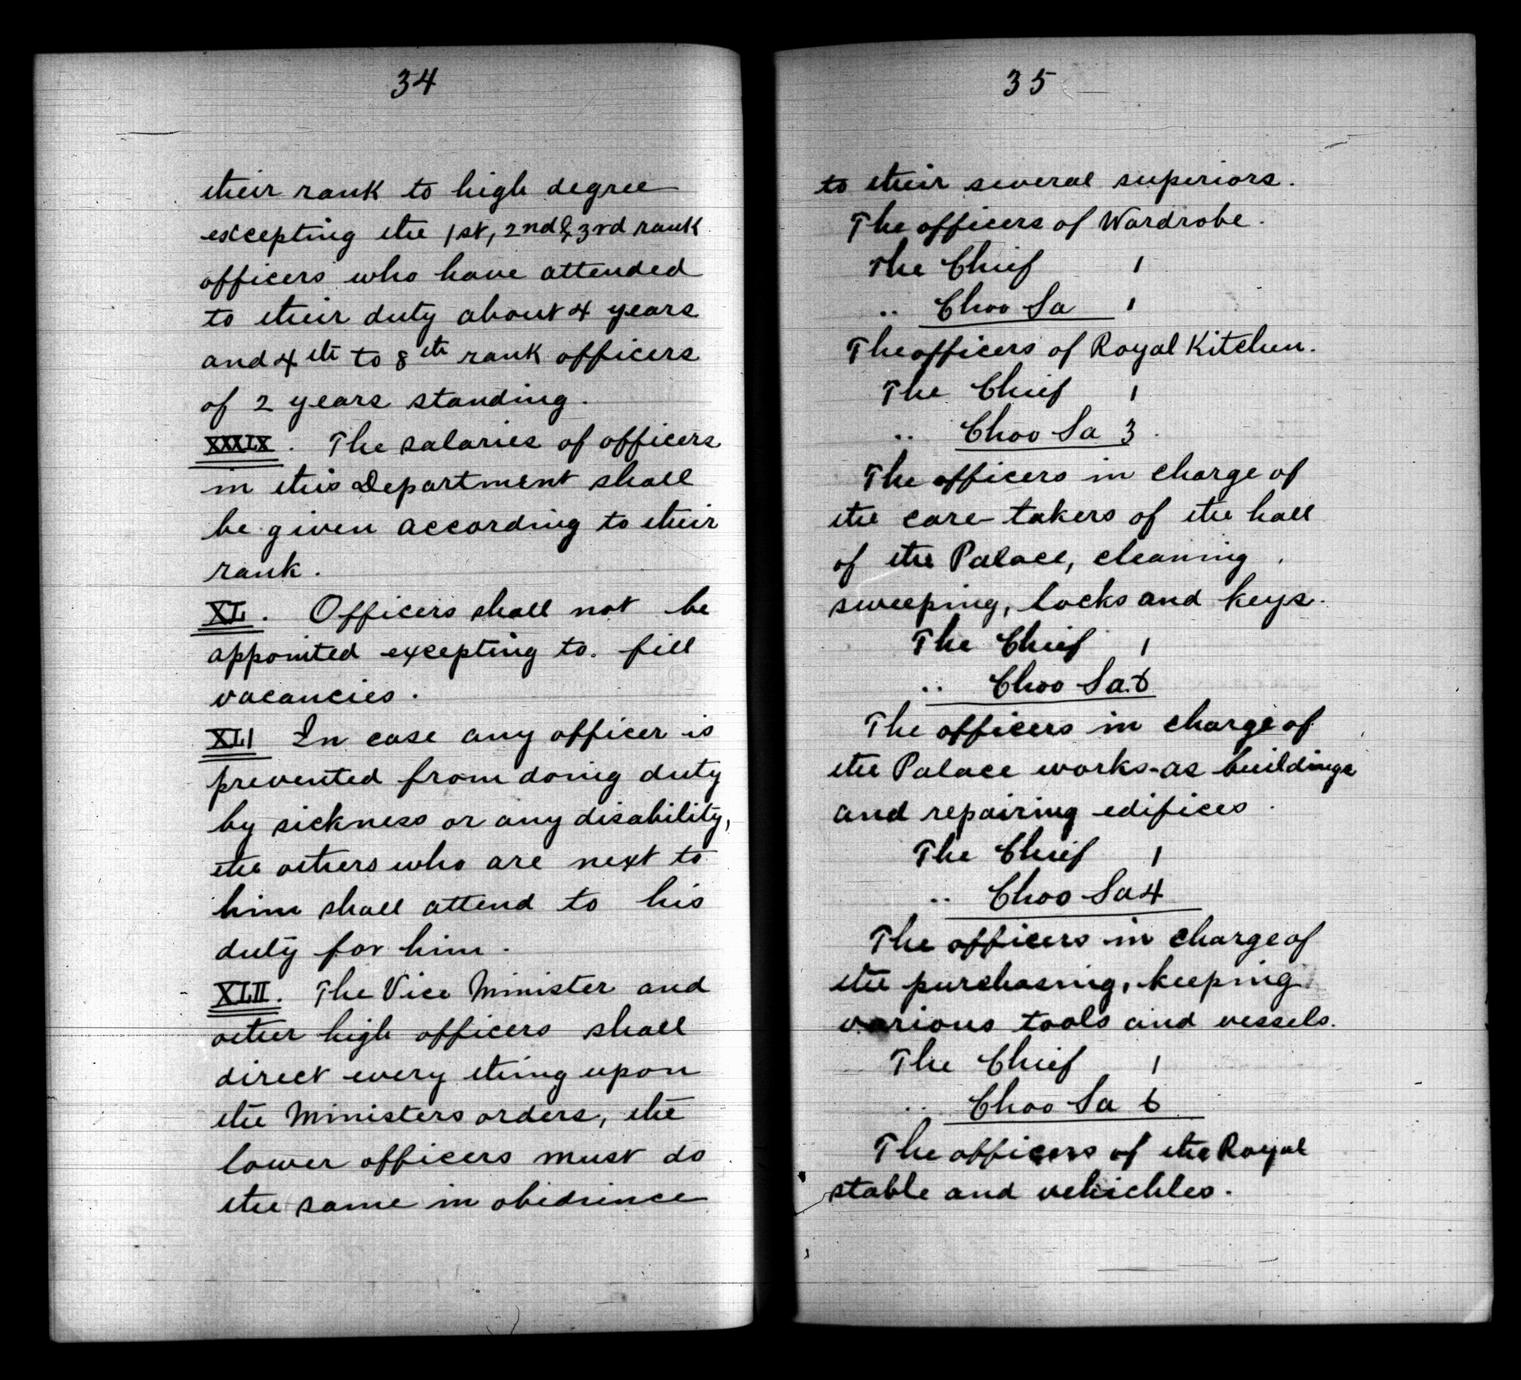 34
their rank to high degree
excepting the 1st, 2nd & 3rd rank
officers who have attended
to their duty about 4 years
and 4th to 8th rank officers
of 2 years standing.
XXXIX. The salaries of officers
in this Department shall
be given according to their
rank.
XL. Officers shall not be
appointed excepting to. fill
vacancies.
XLI In case any officer is
prevented from doing duty
by sickness or any disability,
the others who are next to
him shall attend to his
duty for him.
XLII. The Vice Minister and
other high officers shall
direct every thing upon
the Ministers orders, the
lower officers must do
the same in obedience
35
to their several superiors.
The officers of Wardrobe.
The Chief 1
.. Choo Sa 1
The officers of Royal Kitchen.
The Chief 1
.. Choo Sa 3.
The officers in charge of
the care-takers of the hall
of the Palace, cleaning,
sweeping, locks and keys.
The Chief 1
.. Choo Sa. 6
The officers in charge of
the Palace works-as buildings
and repairing edifices.
The Chief 1
.. Choo Sa 4
The officers in charge of
the purchasing, keeping
various tools and vessels.
The Chief 1
.. Choo Sa 6
The officers of the Royal
stable and vehichles.